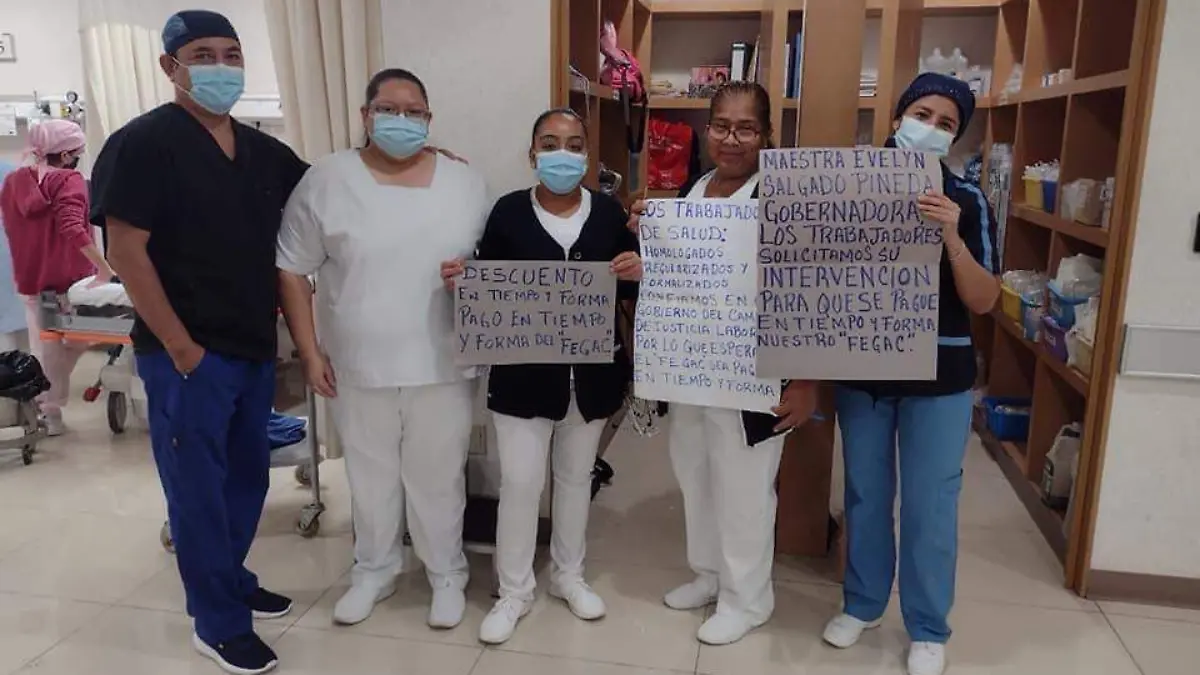 DESCUENTO
EN TIEMPO Y FORMA
PAGO EN TIEMPO
Y FORMA DEL "FEGAC"
LOS TRABAJADO
DE SALUD:
HOMOLOGADOS
REGULARIZADOS Y
FORMALIZADOS
CONFIAMOS EN
GOBIERNO DEL CAM
DE JUSTICIA LABO
POR LO QUE ESPERA
EL "FEGAC" SEA PAG
EN TIEMPO Y FORMA
MAESTRA EVELYN
SALGADO PINEDA
GOBERNADORA,
LOS TRABAJADORES
SOLICITAMOS SU
INTERVENCION
PARA QUE SE PAGUE
EN TIEMPO Y FORMA
NUESTRO "FEGAC".